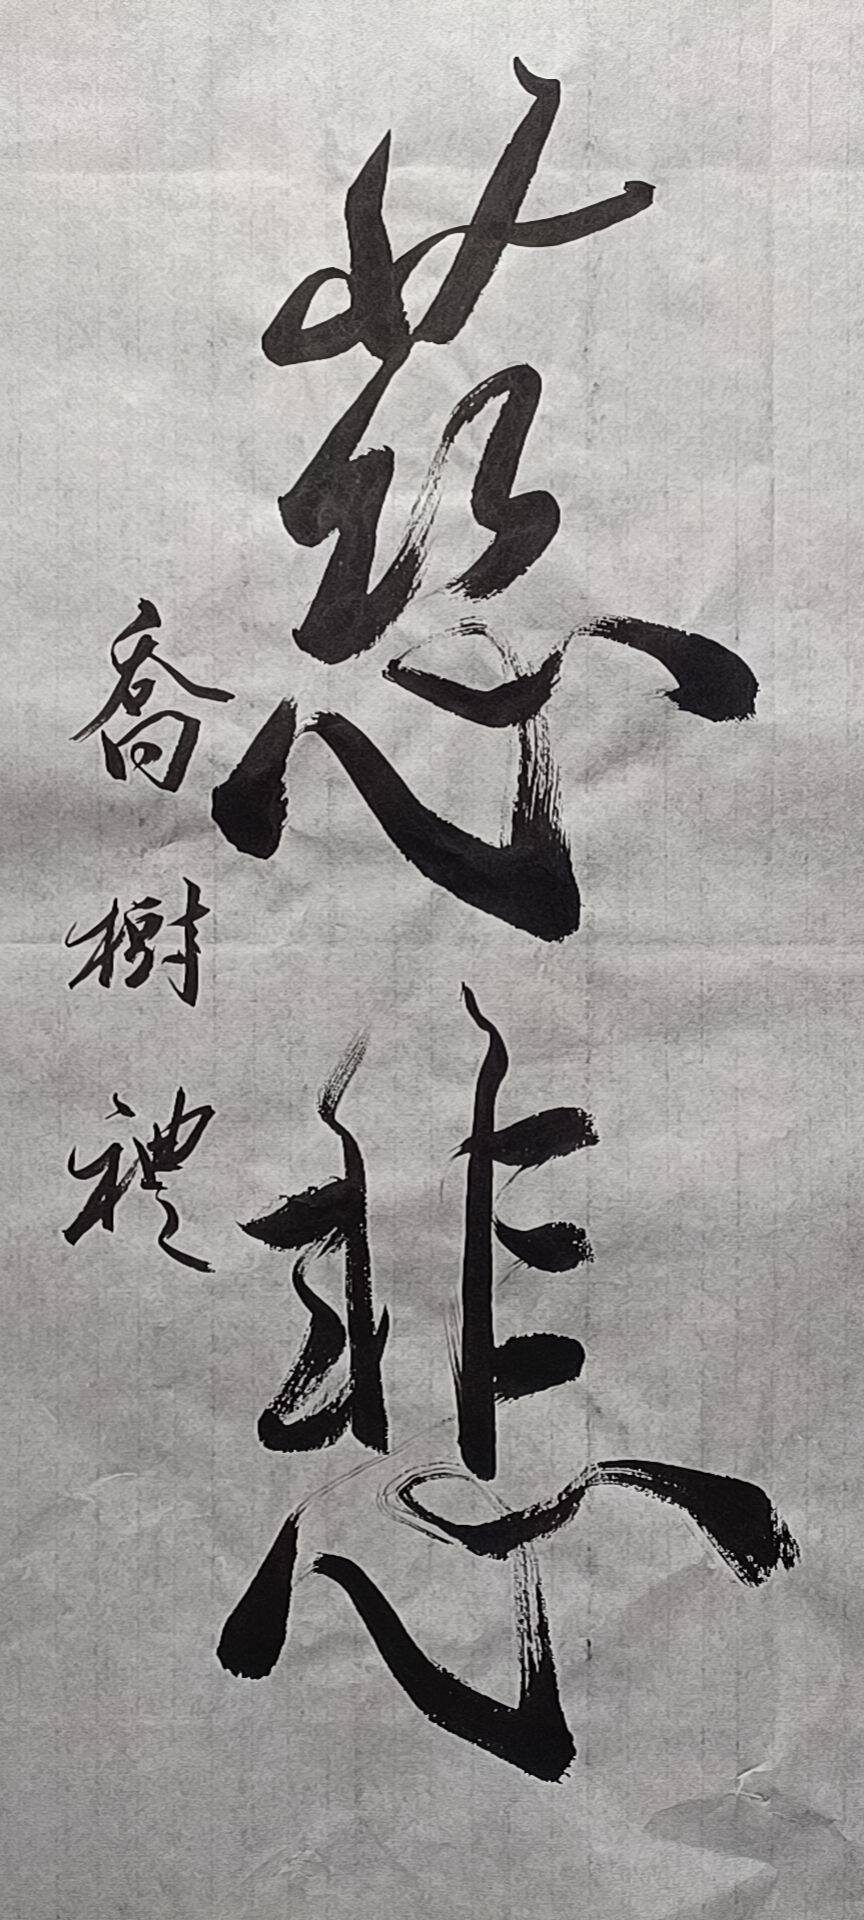 慈悲
喬樹禮